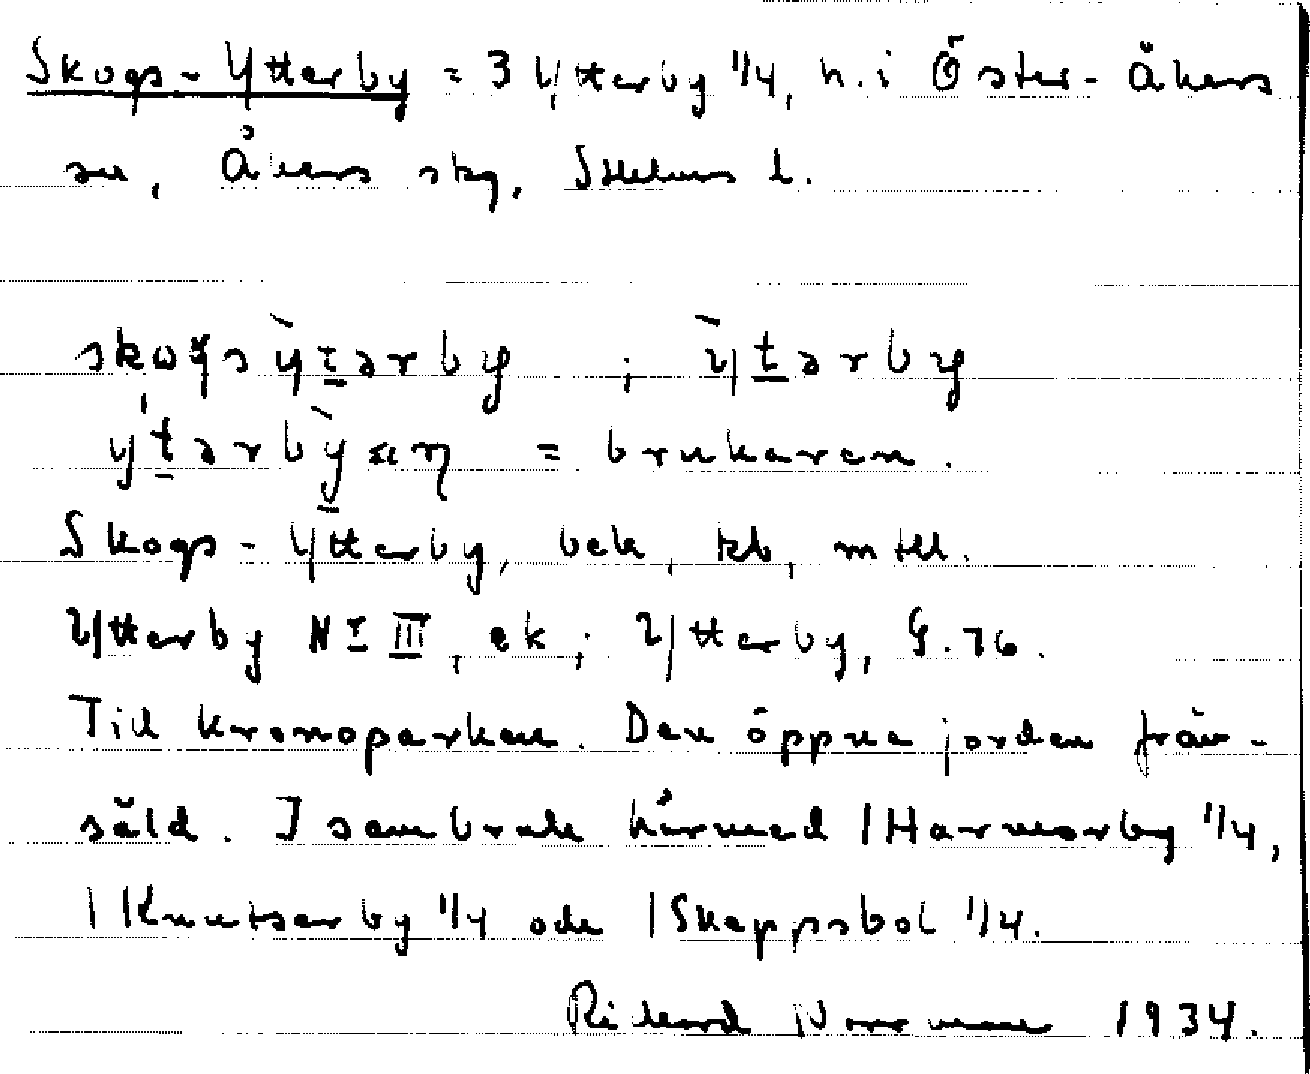 Skogs-Ytterby = 3 Ytterby 1/4, h. i Öster-Åkers
sn, Åkers skg, Sthlms l.
skoɣsỳtərby ; ỳtərby
ýtərbỳaŋ = brukaren.
Skogs-Ytterby, bek, kb, mtll.
Ytterby Nr III, ek; Ytterby, G. 76.
Till kronoparken. Den öppna jorden från-
såld. I sambruk härmed 1 Harmorby 1/4,
1 Knutserby 1/4 och 1 Skeppsbol 1/4.
Rikard 1934.